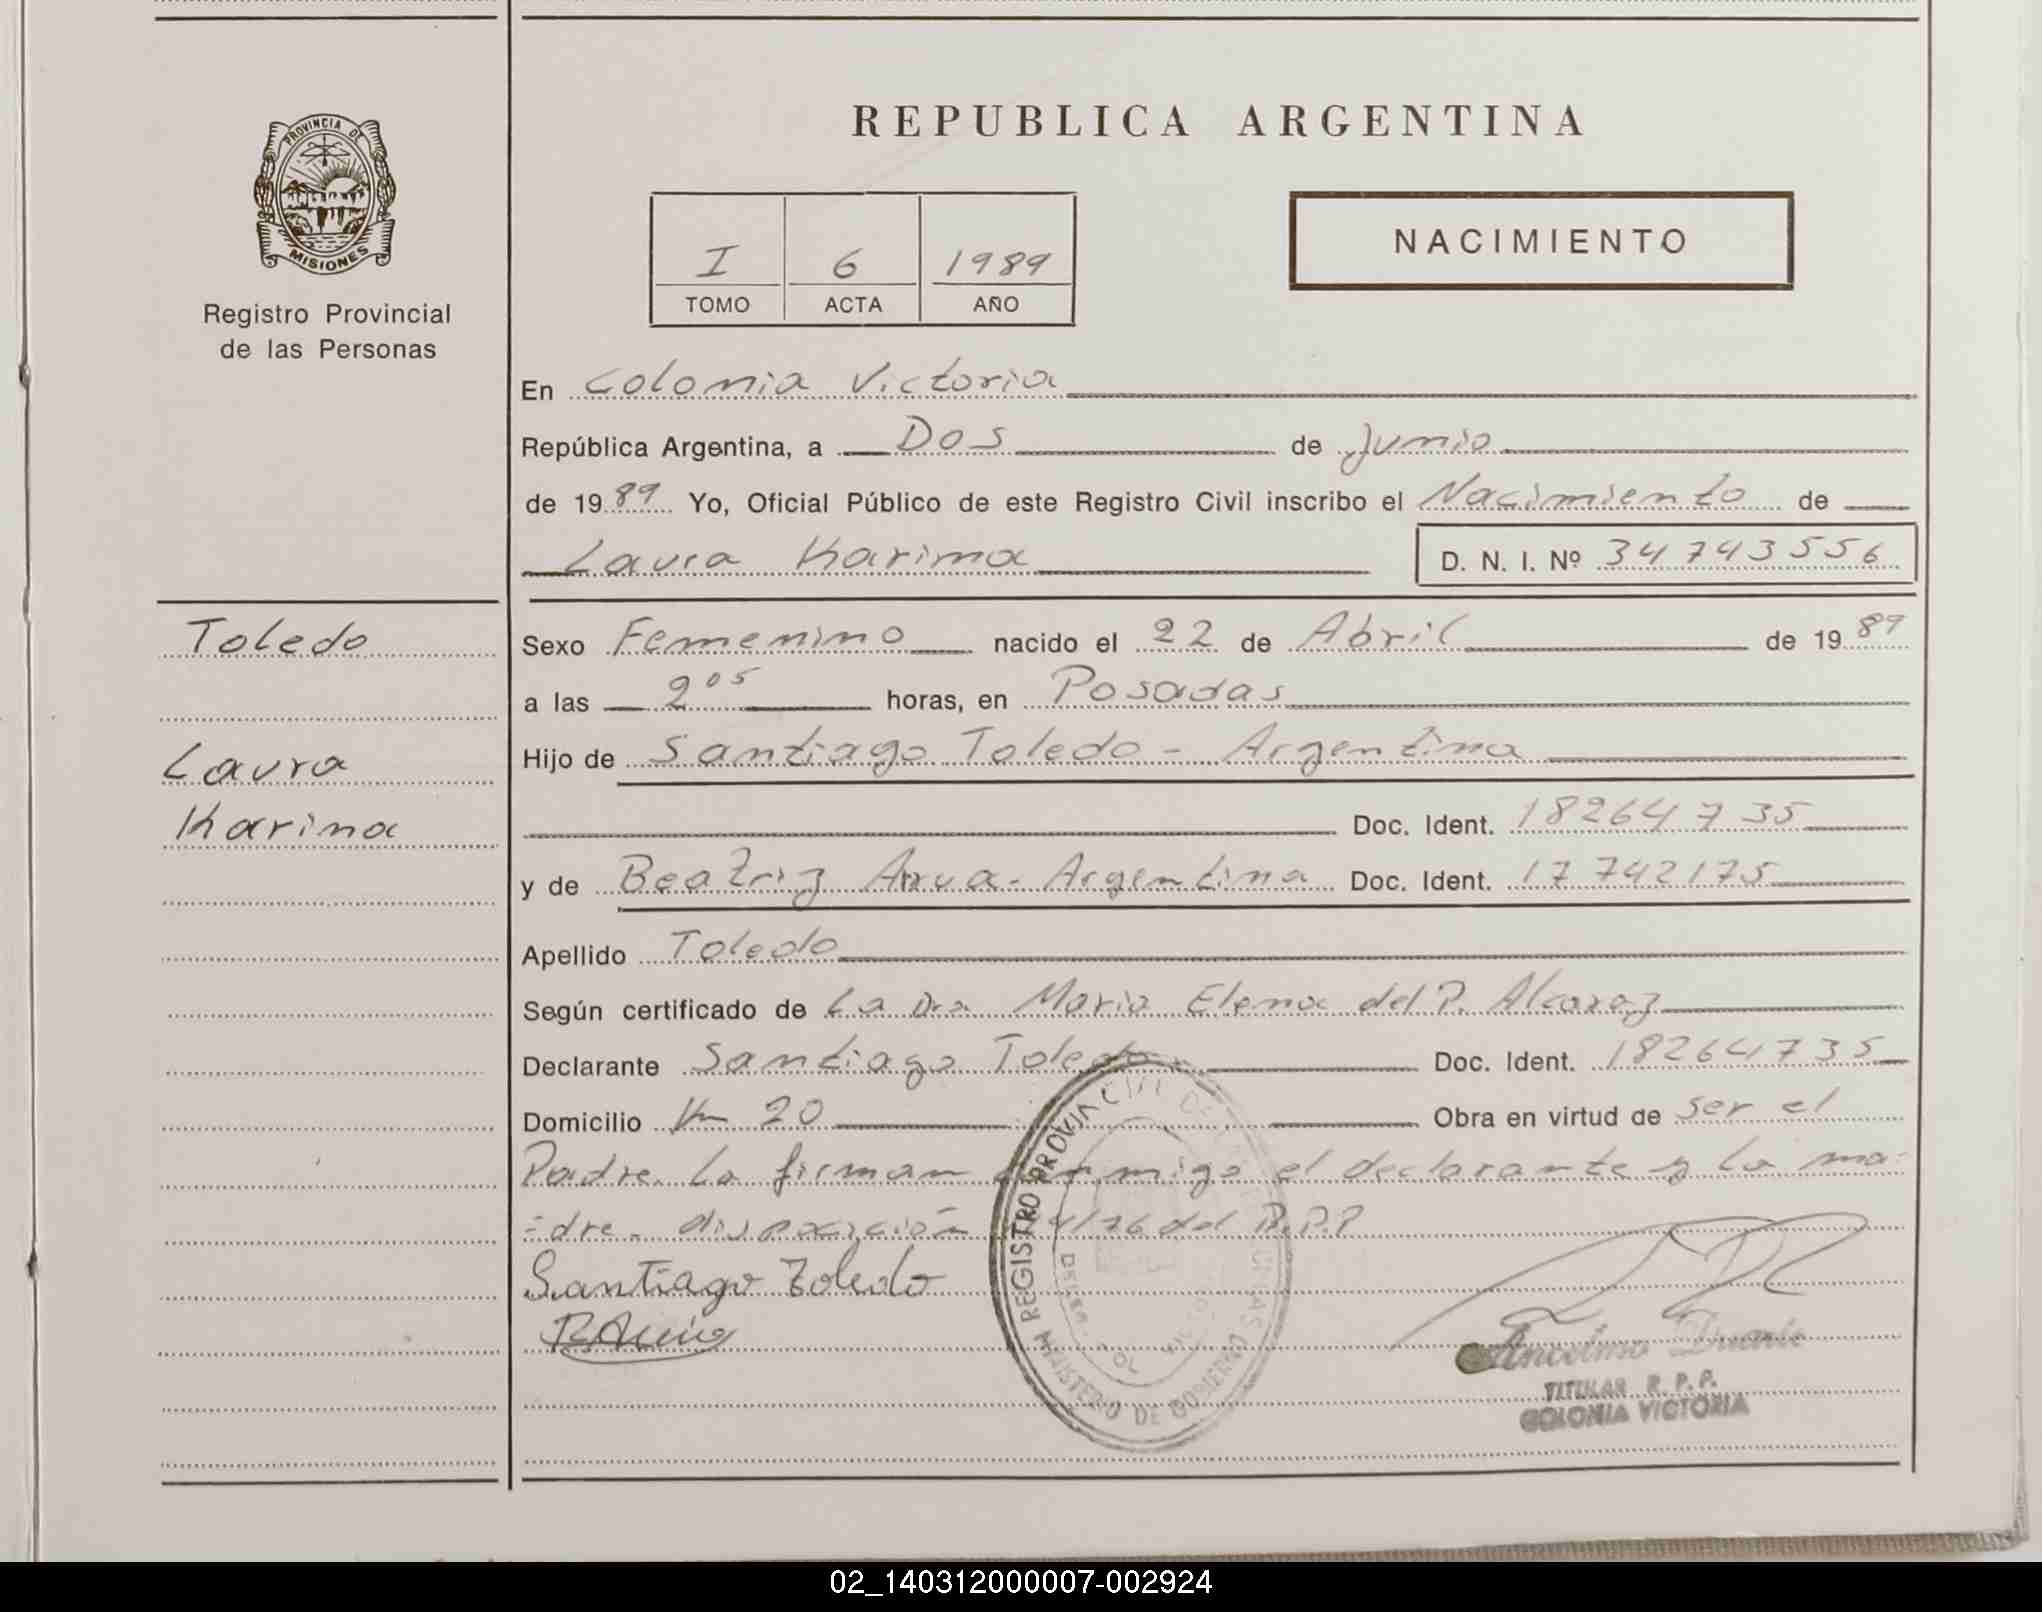 REPUBLICA ARGENTINA
PROVINCIA DE
MISIONES
Registro Provincial
de las Personas
I 6 1989
TOMO ACTA AÑO
NACIMIENTO
En Colonia Victoria
República Argentina, a Dos de Junio
de 1989 Yo, Oficial Público de este Registro Civil inscribo el Nacimiento de
Laura Karina
D. N. I. Nº 34743556
Toledo
Laura
Karina
Sexo Femenino nacido el 22 de Abril de 1989
a las 2 05 horas, en Posadas
Hijo de Santiago Toledo - Argentina
Doc. Ident. 18264735
y de Beatriz Arrua - Argentina Doc. Ident. 17742175
Apellido Toledo
Según certificado de La Dra Maria Elena del P. Alcaraz
Declarante Santiago Toledo Doc. Ident. 18264735
Domicilio Km 20 Obra en virtud de ser el
Padre. La firman conmigo el declarante y la ma-
-dre. disposición 4/76 del R.P.P
Santiago Toledo
REGISTRO PROVINCIAL DE LAS
MINISTERIO DE GOBIERNO
Anselmo Duarte
TITULAR R. P. P.
COLONIA VICTORIA
02_140312000007-002924